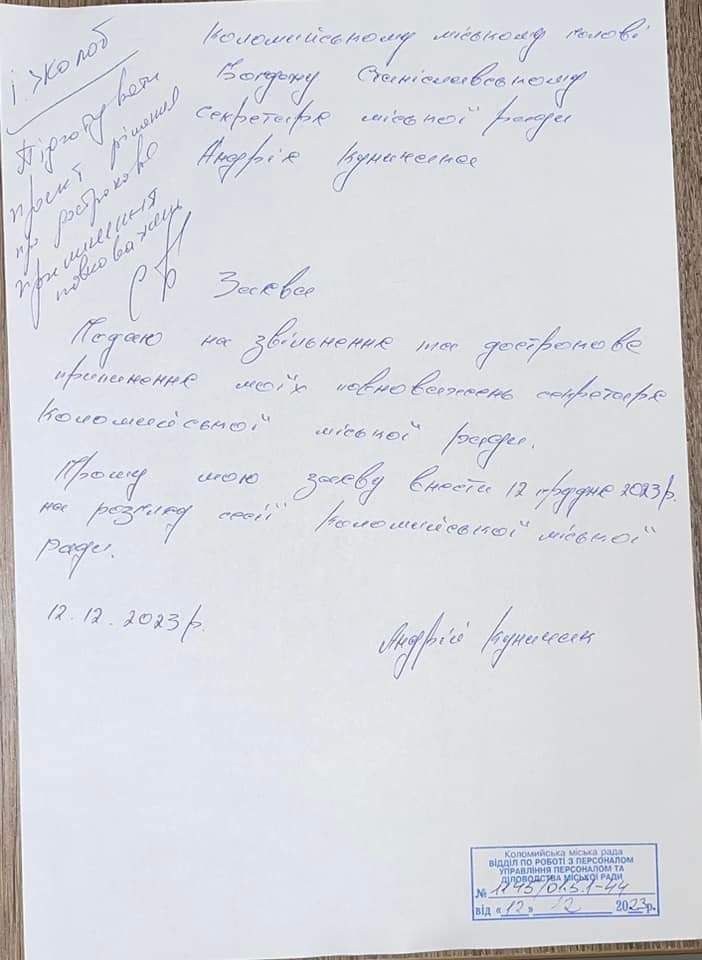 І. Жолоб
Підготувати
проєкт рішення
про дострокове
припинення
повноважень
Коломийському міському голові
Богдану Станіславському
секретаря міської ради
Андрія Куничака
Заява
Подаю на звільнення та дострокове
припинення моїх повноважень секретаря
Коломийської міської ради.
Прошу мою заяву внести 12 грудня 2023 р.
на розгляд сесії Коломийської міської
ради.
12.12.2023 р.
Андрій Куничак
Коломийська міська рада
ВІДДІЛ ПО РОБОТІ З ПЕРСОНАЛОМ
УПРАВЛІННЯ ПЕРСОНАЛОМ ТА
ДІЛОВОДСТВА МІСЬКОЇ РАДИ
№ 1145/01.5.1-44
від «12» 12 2023 р.